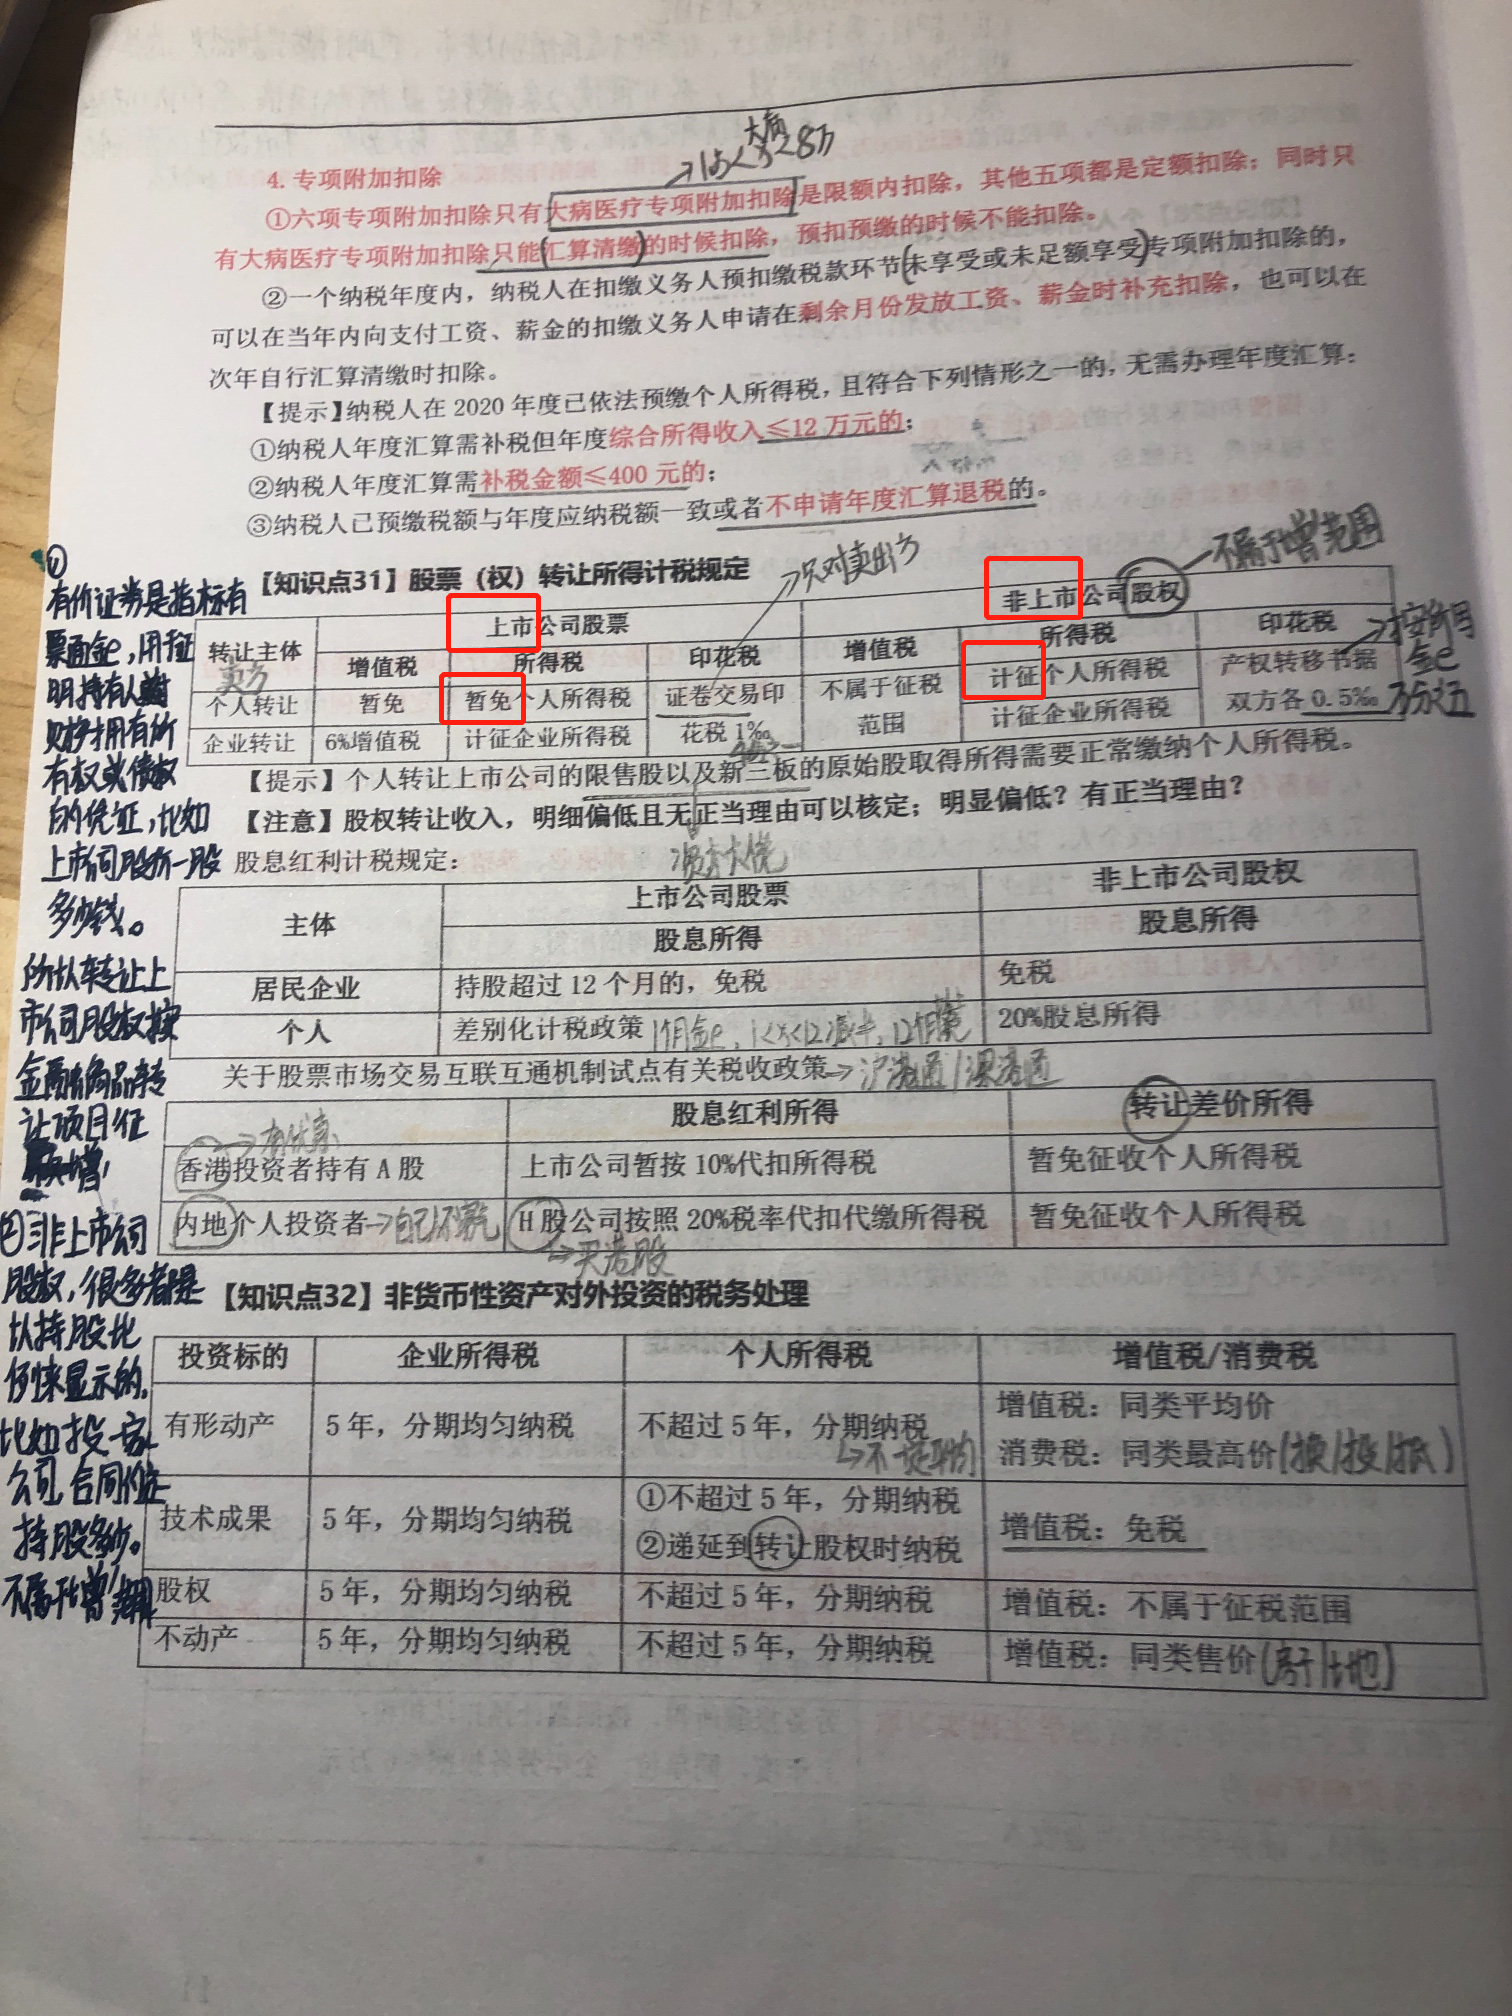 大病
→1.5<x<8万
4. 专项附加扣除
①六项专项附加扣除只有大病医疗专项附加扣除是限额内扣除，其他五项都是定额扣除；同时只
有大病医疗专项附加扣除只能(汇算清缴)的时候扣除，预扣预缴的时候不能扣除。
②一个纳税年度内，纳税人在扣缴义务人预扣缴税款环节(未享受或未足额享受)专项附加扣除的，
可以在当年内向支付工资、薪金的扣缴义务人申请在剩余月份发放工资、薪金时补充扣除，也可以在
次年自行汇算清缴时扣除。
【提示】纳税人在 2020 年度已依法预缴个人所得税，且符合下列情形之一的，无需办理年度汇算：
①纳税人年度汇算需补税但年度综合所得收入≤12 万元的；
②纳税人年度汇算需补税金额≤400 元的；
③纳税人已预缴税额与年度应纳税额一致或者不申请年度汇算退税的。
【知识点31】股票（权）转让所得计税规定
→只对卖出方
不属于增范围
转让主体 上市公司股票 非上市公司股权
增值税 所得税 印花税 增值税 所得税 印花税
卖方
个人转让 暂免 暂免个人所得税 证卷交易印 不属于征税 计征个人所得税 产权转移书据
企业转让 6%增值税 计征企业所得税 花税 1‰ 范围 计征企业所得税 双方各 0.5‰
→按所载
金e
万分之五
【提示】个人转让上市公司的限售股以及新三板的原始股取得所得需要正常缴纳个人所得税。
【注意】股权转让收入，明细偏低且无正当理由可以核定；明显偏低？有正当理由？
股息红利计税规定：
主体 上市公司股票 非上市公司股权
股息所得 股息所得
居民企业 持股超过 12 个月的，免税 免税
个人 差别化计税政策 20%股息所得
1个月全e，1<x<12减半，12个月免
关于股票市场交易互联互通机制试点有关税收政策→沪港通/深港通
股息红利所得 转让差价所得
→有优惠
香港投资者持有 A 股 上市公司暂按 10%代扣所得税 暂免征收个人所得税
内地个人投资者→自己不缴 H 股公司按照 20%税率代扣代缴所得税 暂免征收个人所得税
→买港股
【知识点32】非货币性资产对外投资的税务处理
投资标的 企业所得税 个人所得税 增值税/消费税
有形动产 5 年，分期均匀纳税 不超过 5 年，分期纳税 增值税：同类平均价
→不一定平均 消费税：同类最高价(换/投/抵)
技术成果 5 年，分期均匀纳税 ①不超过 5 年，分期纳税 增值税：免税
②递延到转让股权时纳税
股权 5 年，分期均匀纳税 不超过 5 年，分期纳税 增值税：不属于征税范围
不动产 5 年，分期均匀纳税 不超过 5 年，分期纳税 增值税：同类售价(房/土地)
①
有价证券是指标有
票面金e，用于证
明持有人对
财产拥有所
有权或债权
的凭证，比如
上市公司股票一股
多少钱。
所以转让上
市公司股权按
金融商品转
让项目征
增
②非上市公司
股权，很多都是
以持股比
例来显示的，
比如投一家
公司，合同约定
持股多少。
不属于增范围